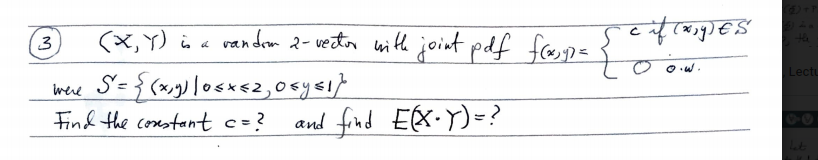 ③ (X,Y) is a random 2-vector with joint pdf f(x,y)= { c if (x,y)∈S
0 o.w.
were S={(x,y)|0≤x≤2,0≤y≤1}
Find the constant c=? and find E(X·Y)=?
Lectu